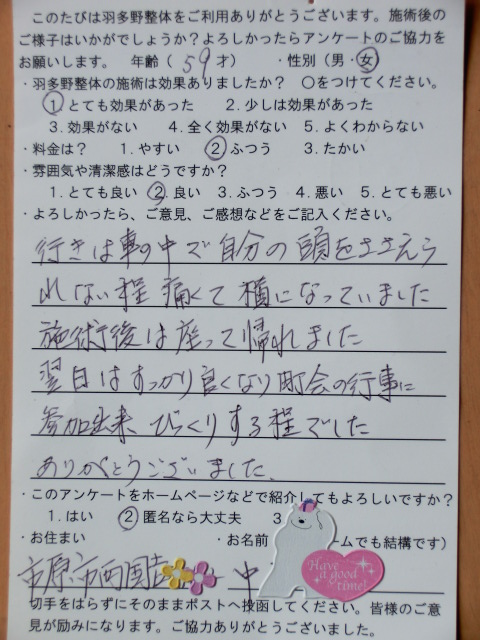 このたびは羽多野整体をご利用ありがとうございます。施術後の
ご様子はいかがでしょうか？よろしかったらアンケートのご協力を
お願いします。 年齢（ 59 才） ・性別（男・女）
・羽多野整体の施術は効果ありましたか？ ○をつけてください。
1. とても効果があった 2. 少しは効果があった
3. 効果がない 4. 全く効果がない 5. よくわからない
・料金は？ 1. やすい 2. ふつう 3. たかい
・雰囲気や清潔感はどうですか？
1. とても良い 2. 良い 3. ふつう 4. 悪い 5. とても悪い
・よろしかったら、ご意見、ご感想などをご記入ください。
行きは車の中で自分の頭をささえら
れない程 痛くて 横になっていました
施術後は座って帰れました
翌日はすっかり良くなり町会の行事に
参加出来 びっくりする程でした
ありがとうございました。
・このアンケートをホームページなどで紹介してもよろしいですか？
1. はい 2. 匿名なら大丈夫 3
・お住まい ・お名前 ームでも結構です）
市原市西国吉 中
Have a good time!
切手をはらずにそのままポストへ投函してください。皆様のご意
見が励みになります。ご協力ありがとうございました。